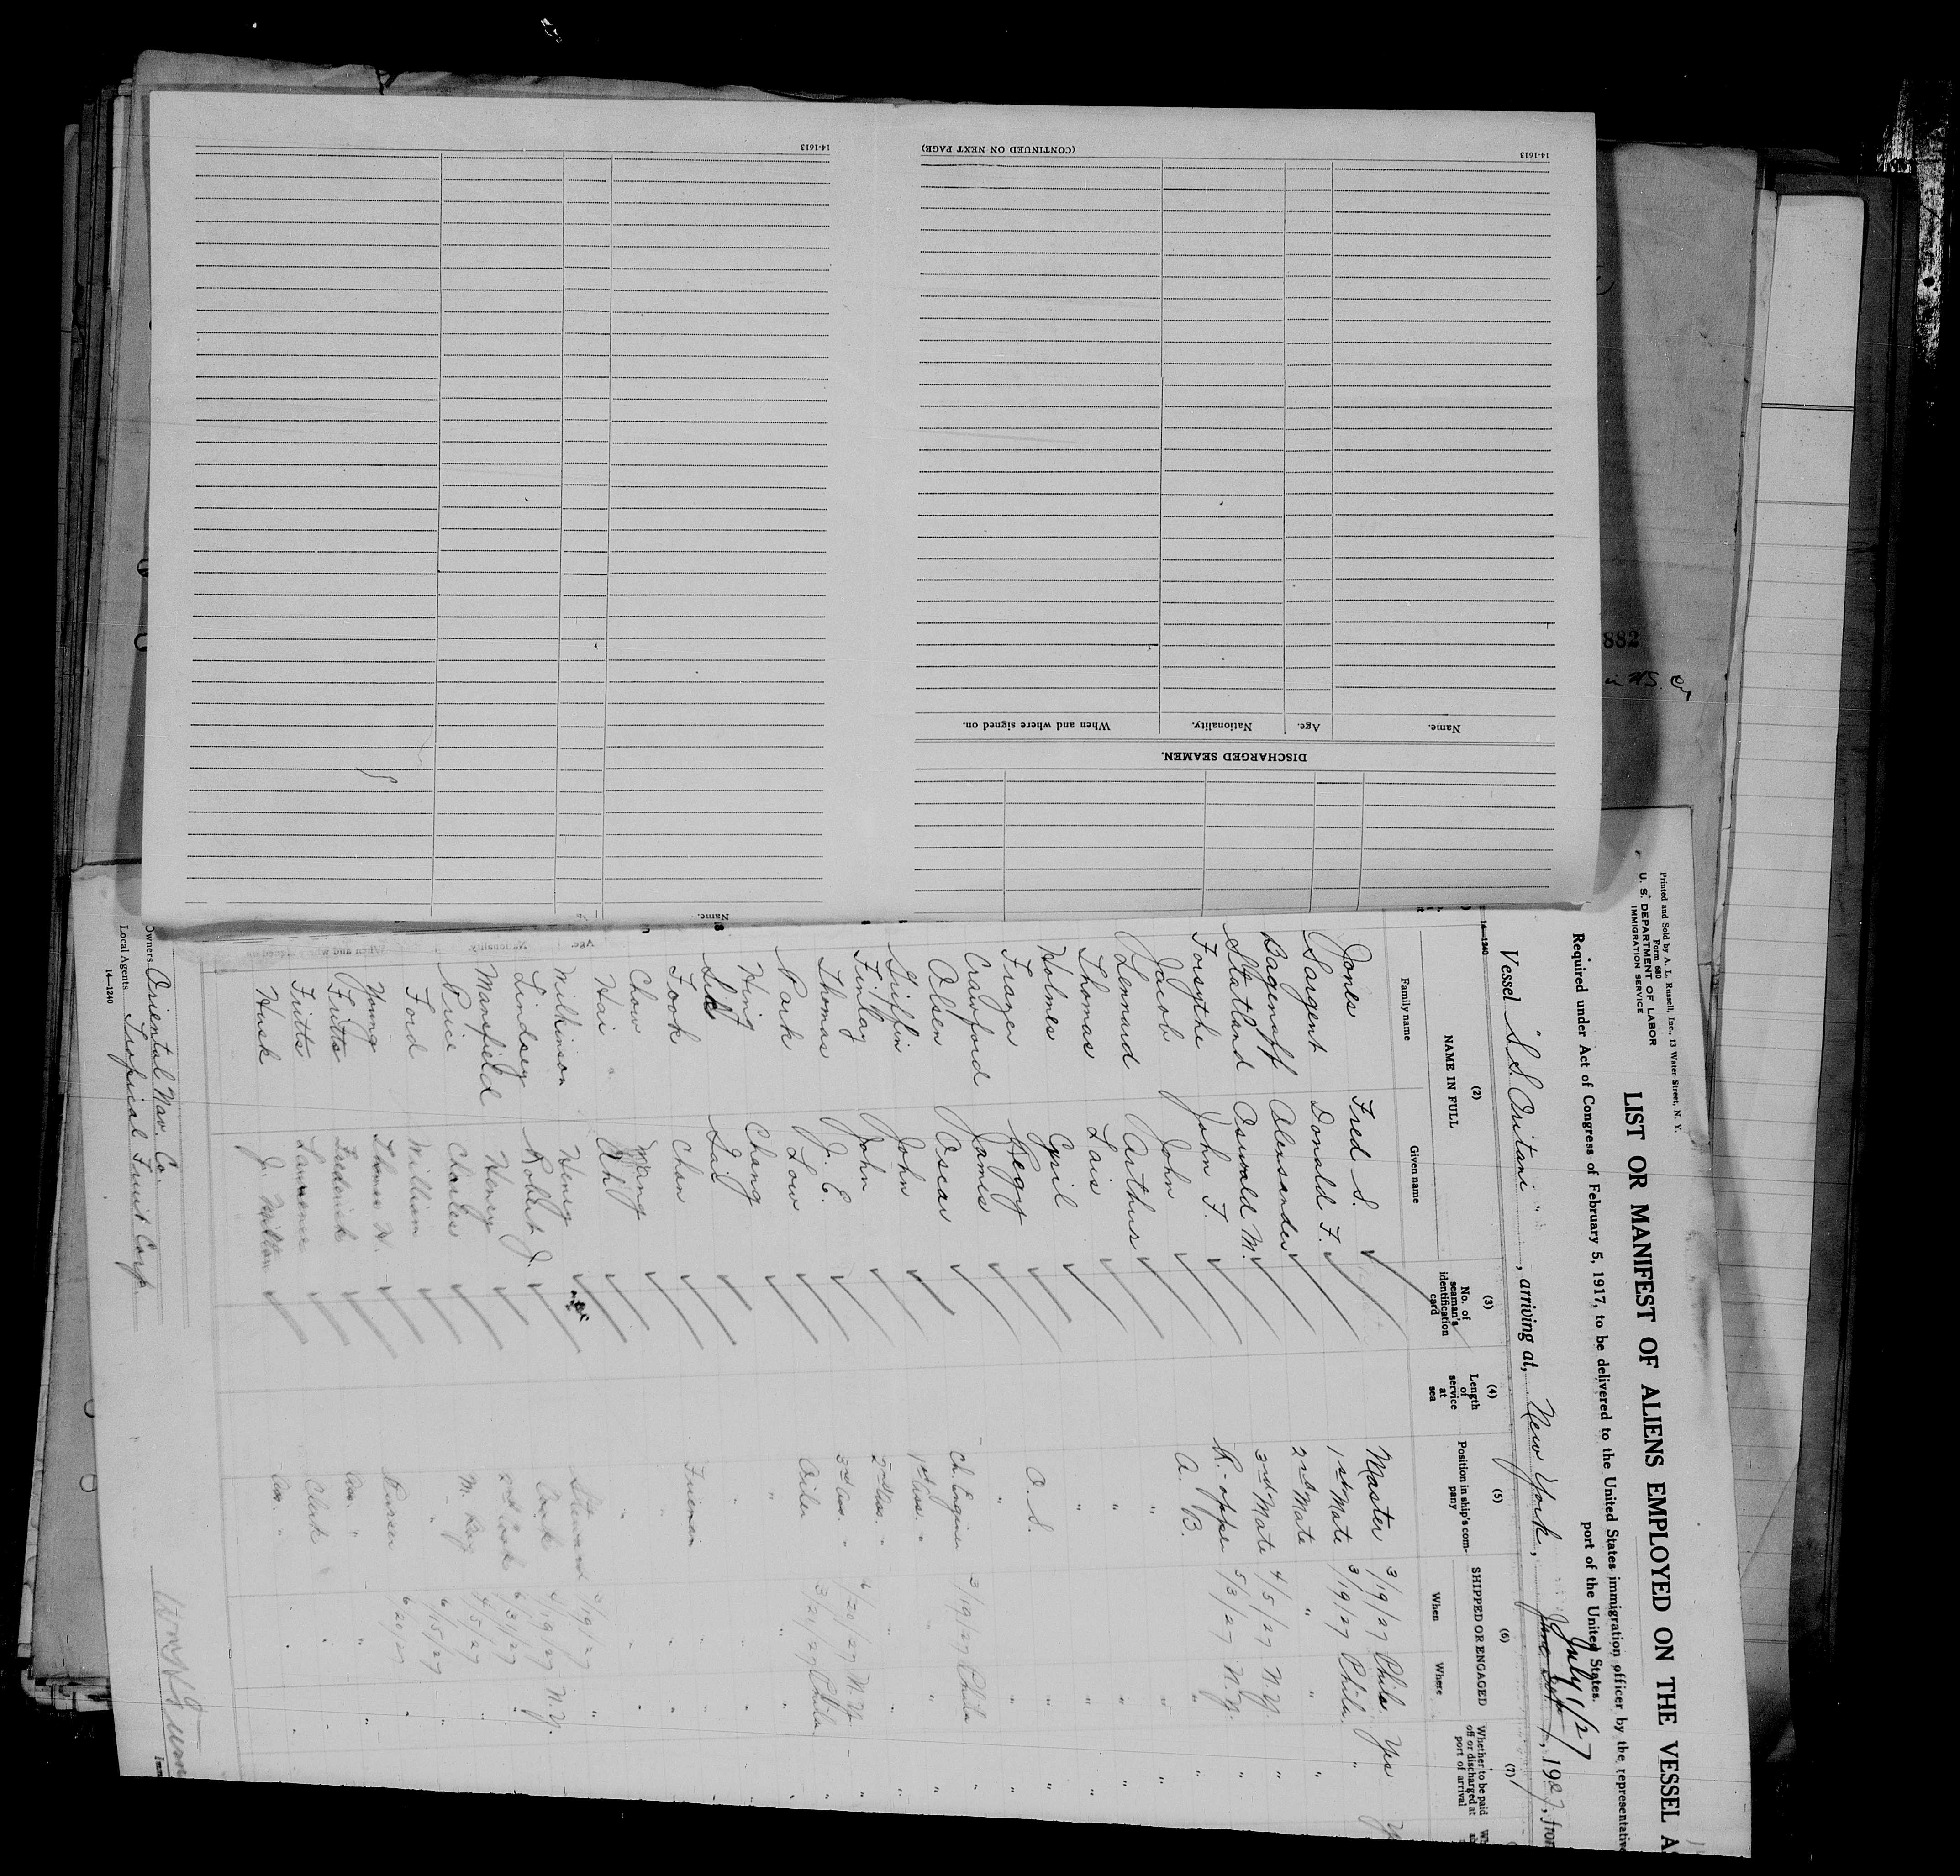 14-1613
(CONTINUED ON NEXT PAGE)
14-1613
Name. Age. Nationality. When and where signed on.
DISCHARGED SEAMEN.
Name.
882
in US.
Printed and Sold by A. L. Russell, Inc., 13 Water Street, N. Y.
Form 680
U. S. DEPARTMENT OF LABOR
IMMIGRATION SERVICE
LIST OR MANIFEST OF ALIENS EMPLOYED ON THE VESSEL A
Required under Act of Congress of February 5, 1917, to be delivered to the United States immigration officer by the representative
port of the United States.
July 1/27
Vessel "S.S. Oritani", arriving at, New York, June, 1927, from
14-1240
(2) (3) (4) (5) (6) (7)
NAME IN FULL
Family name Given name
No. of seaman's identification card
Length of service at sea
Position in ship's company
SHIPPED OR ENGAGED
When Where
Whether to be paid off or discharged at port of arrival
Jones Fred S. Master 3/19/27 Phila. Yes
Sargent Donald F. 1st Mate 3/19/27 Phila. "
Bagenoff Alexsander 2nd Mate " "
Statland Oswald M. 3rd Mate 4/5/27 N.Y. "
Forsythe John F. 5/3/27 N.Y. "
Jacob John A.B. " "
Lennard Arthur " "
Thomas Lais " "
Holmes Cyril "
Frazer Reggy O.S. "
Crawford James " "
Olsen Oscar Ch. Engineer 3/19/27 Phila "
Griffin John 1st Ass. " " "
Finlay John 2nd Ass. " "
Thomas J. E. 3rd Ass. " 6/20/27 N.Y. "
Park Low Oiler 3/21/27 Phila "
Hing Chang " "
Sue
Fook Chan Firemen
Chow
Hai Ah "
Wilkinson Henry Steward 3/19/27 "
Lindsey Robert J. Cook 4/19/27 N.Y.
Mansfield Henry 2nd Cook 6/3/27 "
Price Charles M. Boy 4/5/27 "
Ford William " 6/15/27 "
Young Thomas H. Purser 6/20/27 "
Fritts Frederick Ass. "
Fritts Lawrence Clerk
Husk J. Milton Ass. "
Owners Oriental Nav. Co.
Local Agents Tropical Fruit Corp.
14-1240